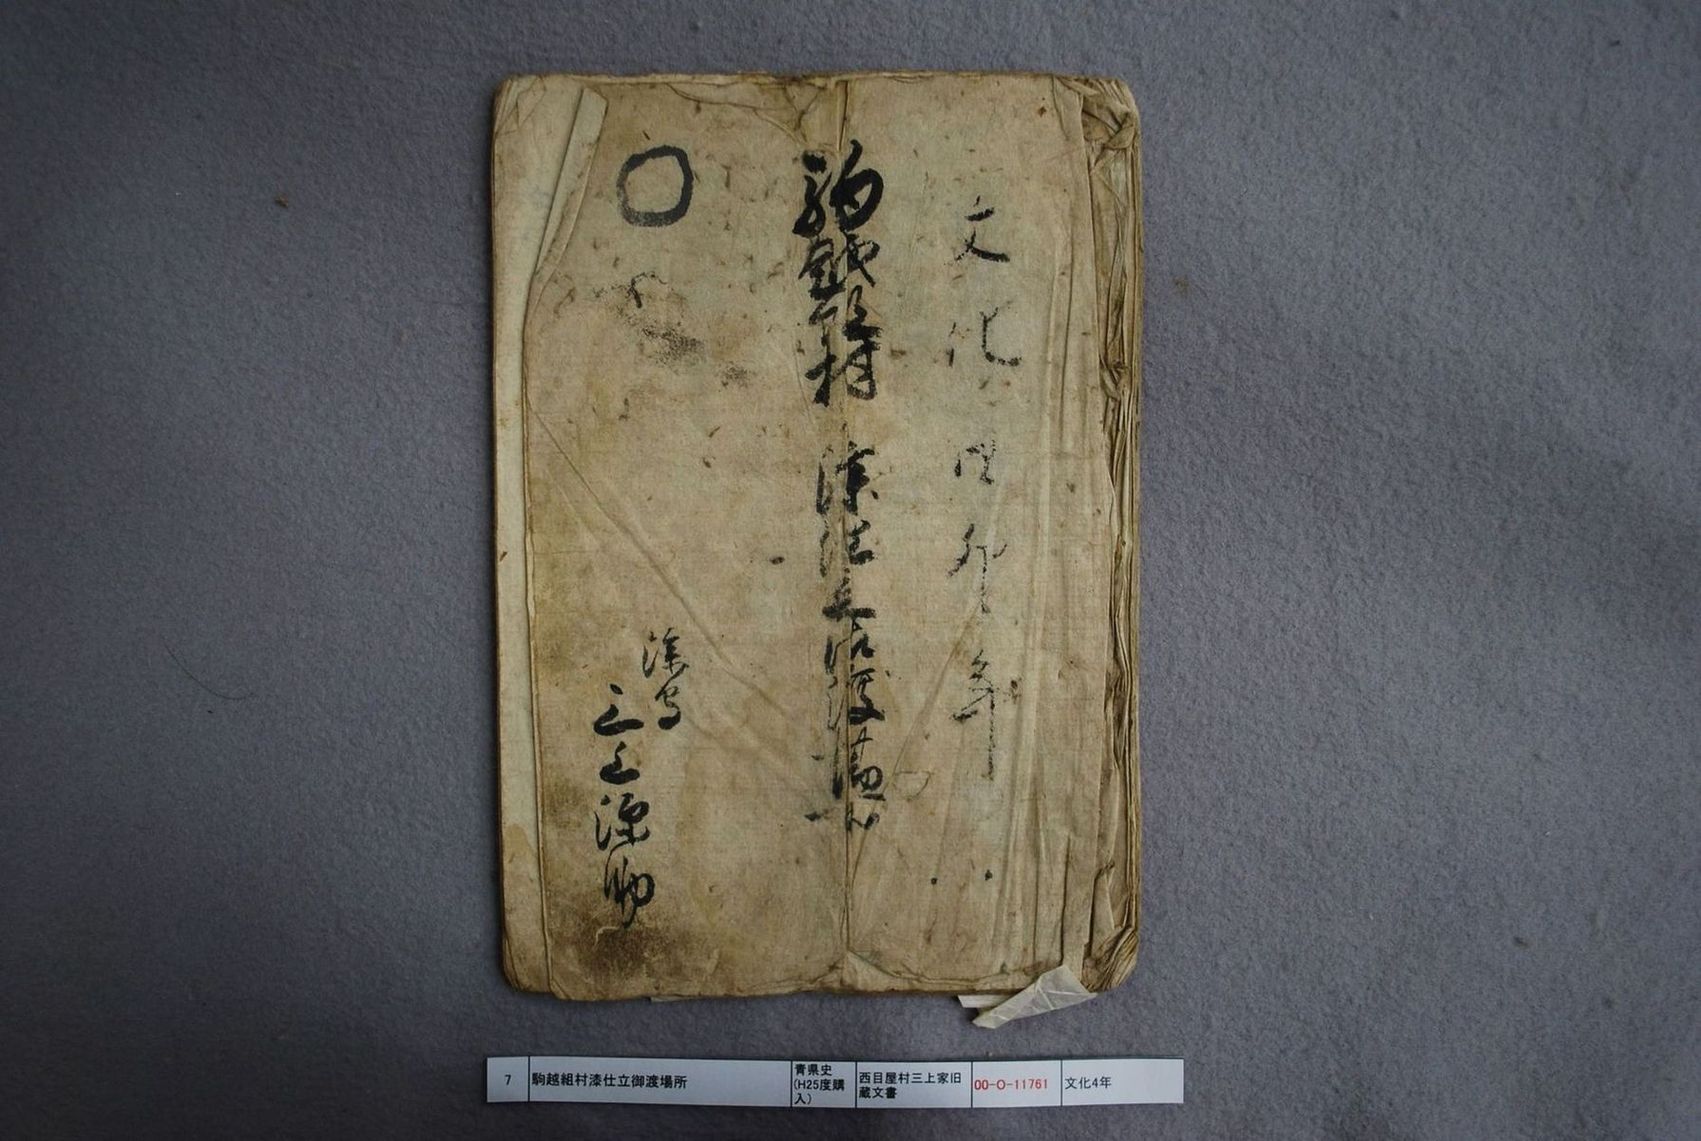 文化四卯年
駒越組村 漆仕立御渡
漆守
三上源助
7
駒越組村漆仕立御渡場所
青県史
(H25度購
入)
西目屋村三上家旧
蔵文書
00-O-11761
文化4年